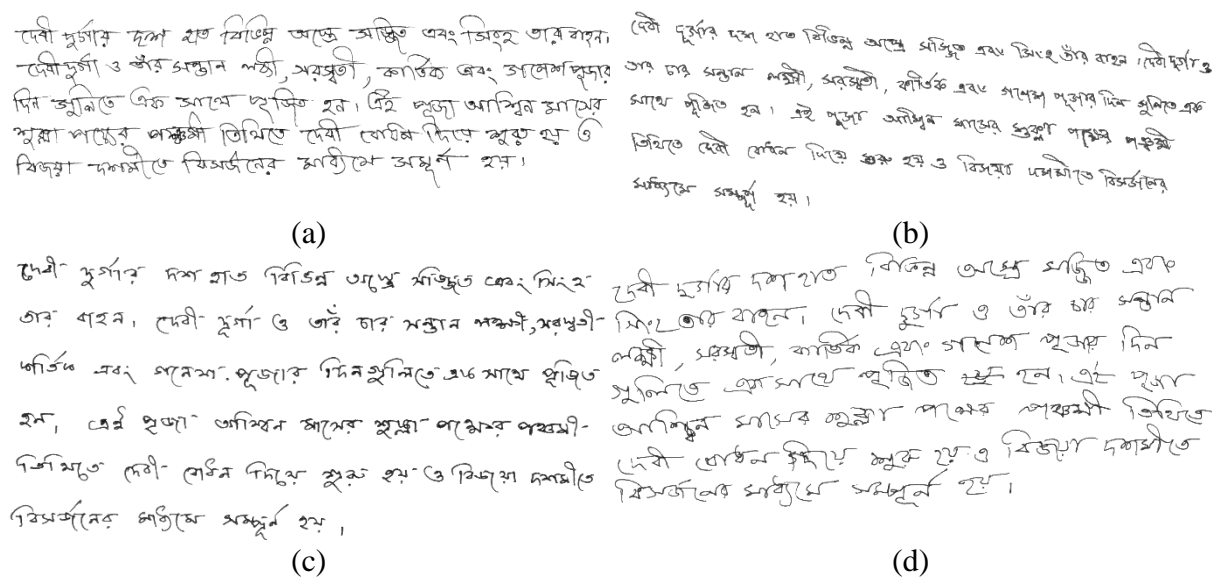 দেবী দুর্গার দশ হাত বিভিন্ন অস্ত্রে সজ্জিত এবং সিংহ তার বাহন।
দেবী দুর্গা ও তাঁর সন্তান লক্ষী, সরস্বতী, কার্তিক এবং গনেশ পুজার
দিন গুলিতে এক সাথে পূজিত হন। এই পূজা আশ্বিন মাসের
শুক্লা পক্ষের পঞ্চমী তিথিতে দেবী বোধন দিয়ে শুরু হয় ও
বিজয়া দশমীতে বিসর্জনের মাধ্যমে সম্পূর্ন হয়।
(a)
দেবী দূর্গার দশ হাত বিভিন্ন অস্ত্রে সজ্জিত এবং সিংহ তাঁর বাহন। দেবী দুর্গা ও
তার চার সন্তান লক্ষ্মী, সরস্বতী, কার্তিক এবং গণেশ পূজার দিন গুলিতে এক
সাথে পূজিত হন। এই পূজা আশ্বিন মাসের শুক্লা পক্ষের পঞ্চমী
তিথিতে দেবী বোধন দিয়ে শুরু হয় ও বিজয়া দশমীতে বিসর্জনের
মাধ্যিমে সম্পূর্ন হয়।
(b)
দেবী দুর্গার দশ হাত বিভিন্ন অস্ত্রে সজ্জিত এবং সিংহ
তার বাহন। দেবী দূর্গা ও তাঁর চার সন্তান লক্ষ্মী, সরস্বতী
কার্তিক এবং গনেশ পূজার দিনগুলিতে এক সাথে পূজিত
হন। এই পূজা আশ্বিন মাসের শুক্লা পক্ষের পঞ্চমী
তিথিতে দেবী বোধন দিয়ে শুরু হয় ও বিজয়া দশমীতে
বিসর্জনের মাধ্যমে সম্পূর্ন হয়।
(c)
দেবী দুর্গার দশ হাত বিভিন্ন অস্ত্রে সজ্জিত এবং
সিংহ তার বাহন। দেবী দুর্গা ও তাঁর চার সন্তান
লক্ষ্মী, সরস্বতী, কার্তিক এবং গণেশ পূজার দিন
গুলিতে এক সাথে পূজিত হন। এই পূজা
আশ্বিন মাসের শুক্লা পক্ষের পঞ্চমী তিথিতে
দেবী বোধন দিয়ে শুরু হয় ও বিজয়া দশমীতে
বিসর্জনের মাধ্যমে সম্পূর্ন হয়।
(d)